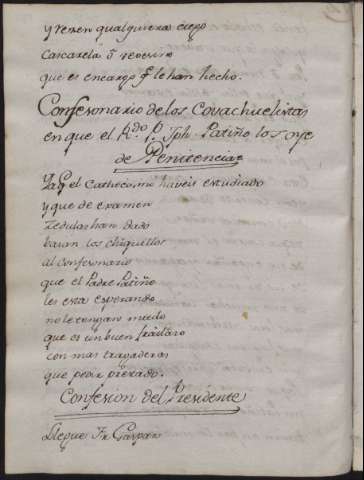 y rezen qualquiera ciego
Cascarela ò reversino
que es encargo q̃ le han hecho.
Confesonario de los Covachuelistas
en que el R.do P. Jph. Patiño los oye
de Penitencia
Ya q̃ el Cathecismo haveis estudiado
y que de examen
zedulas han dado
baian los chiquillos
al confesonario
que el Padre Patiño
les esta esperando
no le tengan miedo
que es un buen frailaro
con mas tragaderas
que pedir prestado.
Confesion del Presidente
Llegue Fr. Gaspar